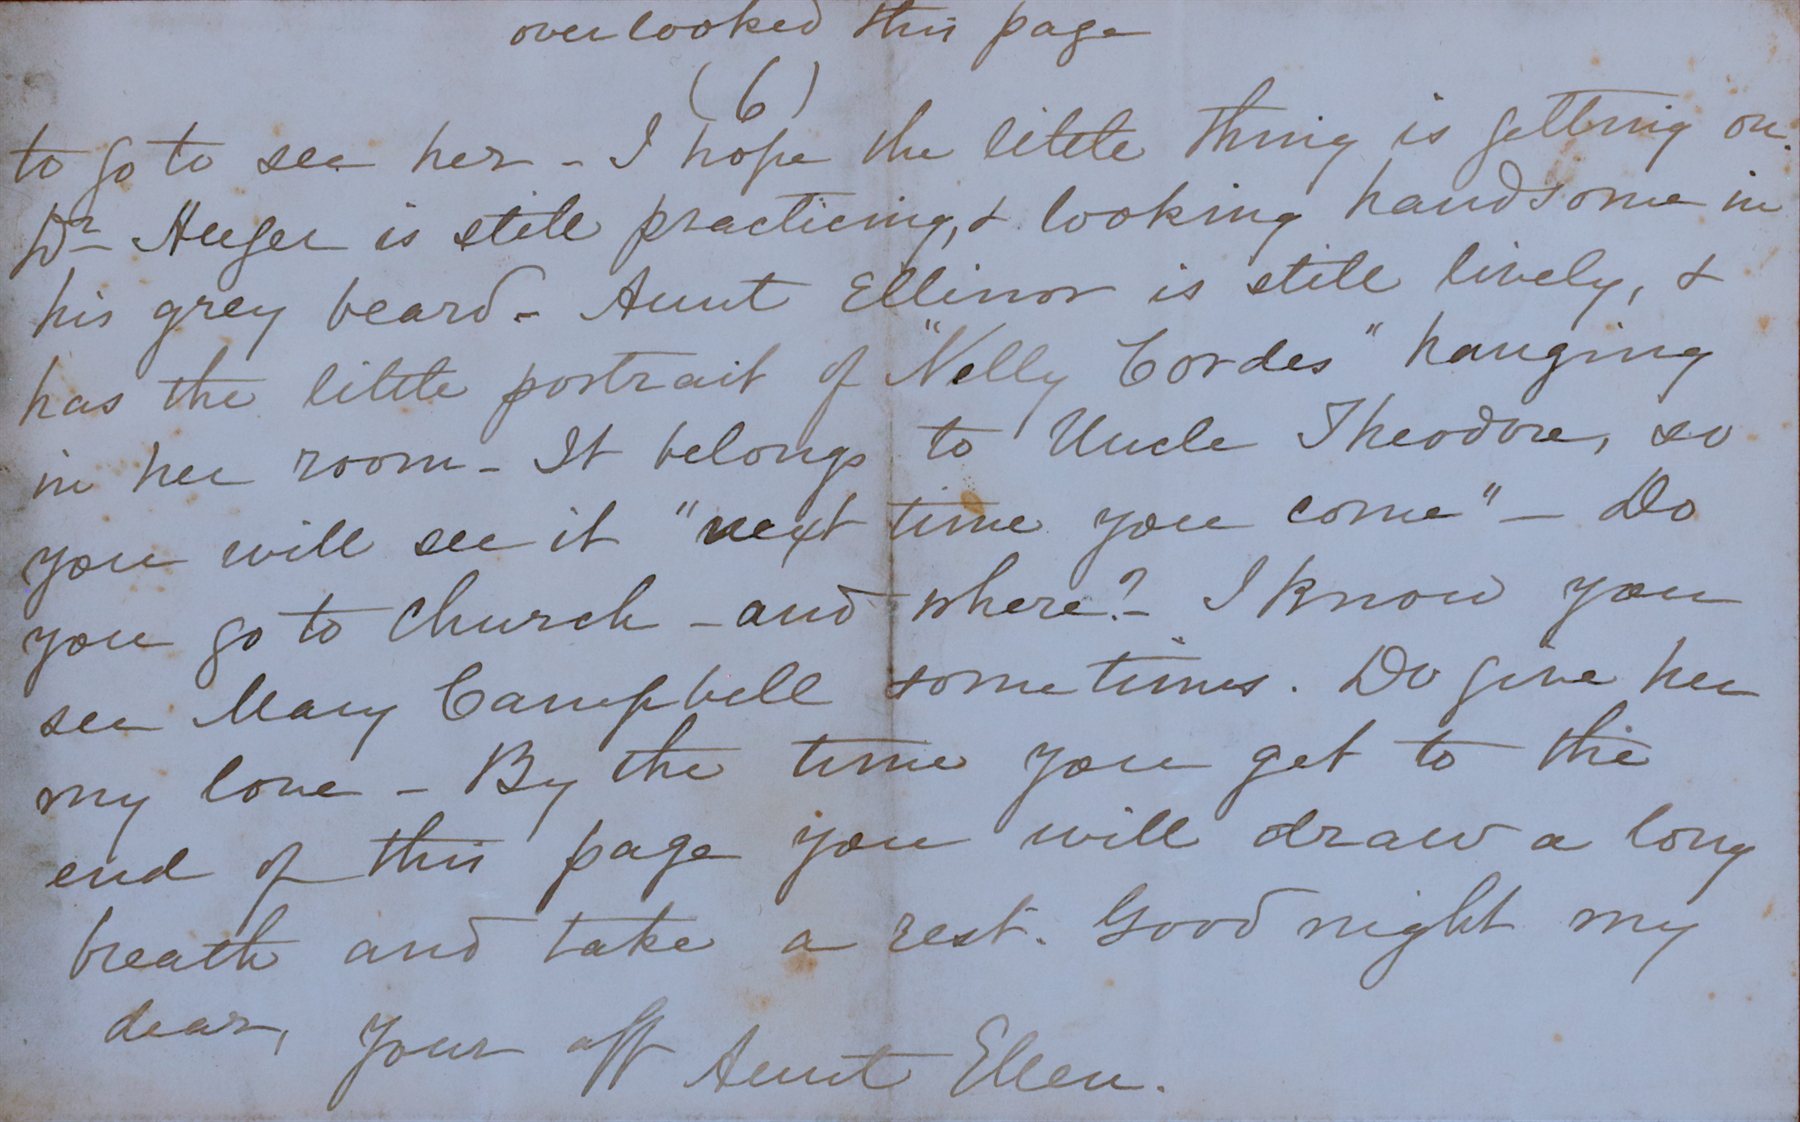 overlooked this page
(6)
to go to see her - I hope the little thing is getting on.
Dr Huger is still practicing, & looking handsome in
his grey beard - Aunt Ellinor is still lively, &
has the little portrait of "Nelly Cordes" hanging
in her room - It belongs to Uncle Theodore, so
you will see it "next time you come" - Do
you go to church - and where? - I know you
see Mary Campbell sometimes. Do give her
my love - By the time you get to the
end of this page you will draw a long
breath and take a rest. Good night my
dear, Your aff Aunt Ellen.